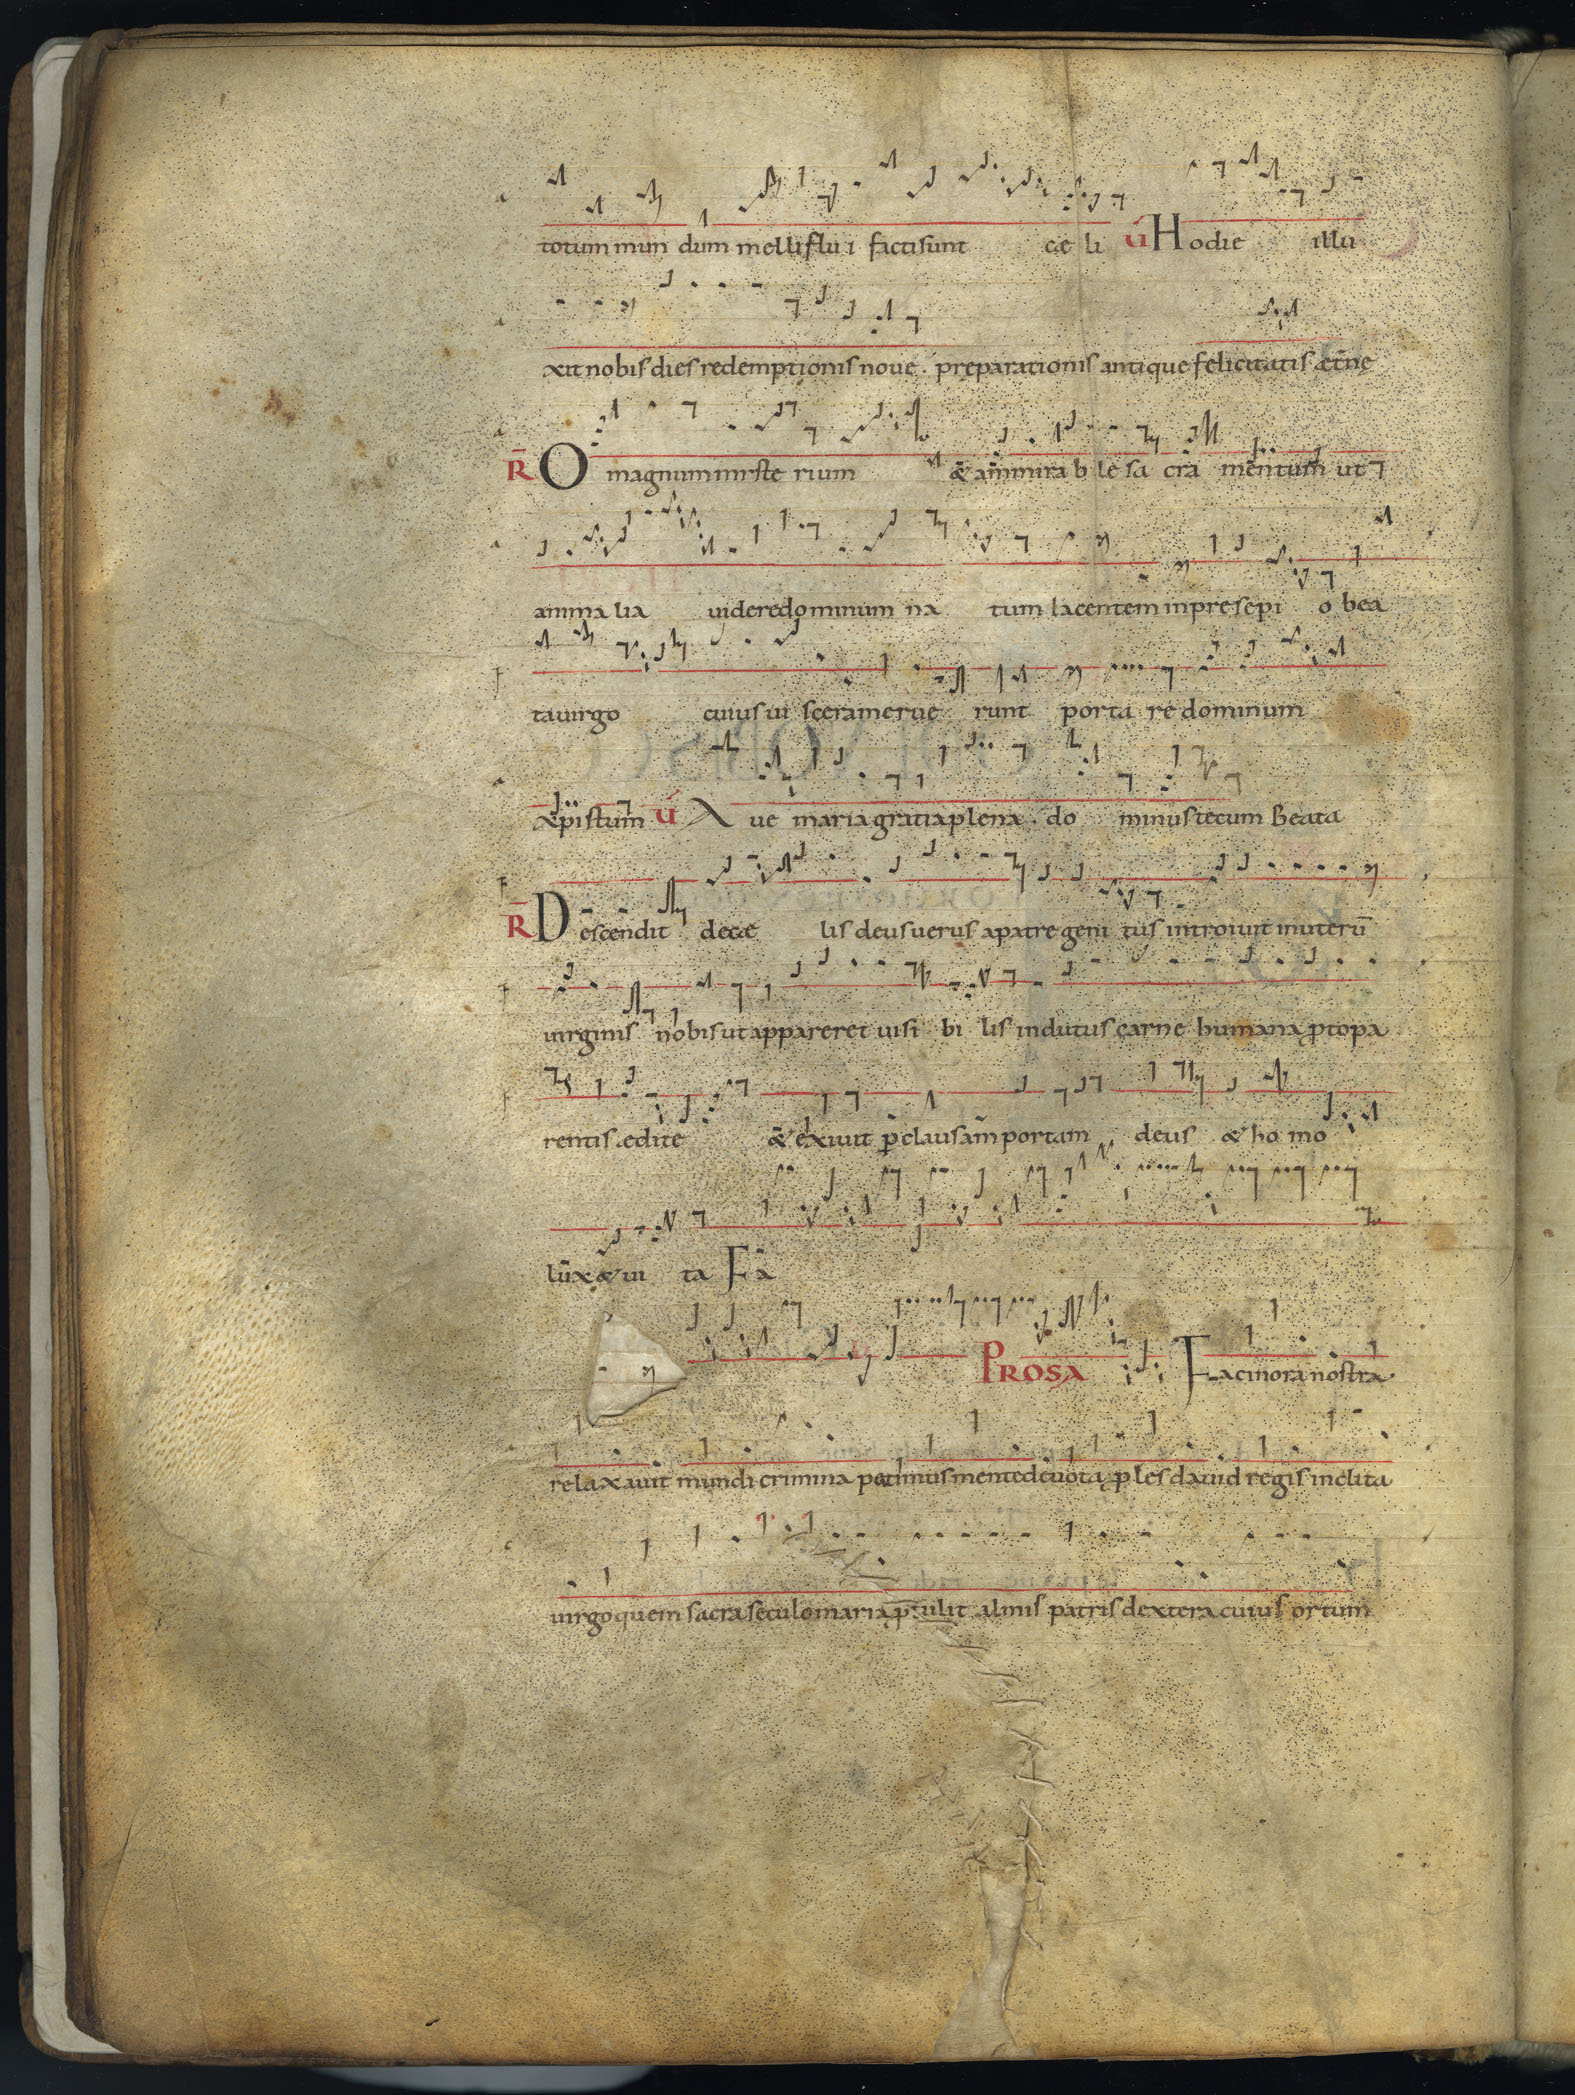 totum mun dum melliflu i facti sunt ce li V̄ Hodie illu
xit nobis dies redemptionis noue. pręparationis antique felicitatis ætn̄ę
R̄ O magnum mıste rium & ammira b le sa cra mentum ut
anima lia uidere dominum na tum lacentem in presepi o bea
ta uirgo cuius ui scera merue runt porta re dominum
xp̄istum V̄ Aue maria gratia plena. do minus tecum Beata
R̄ Descendit de cæ lis deus uerus a patre geni tus introiuit in uterū
uirginis nobis ut appareret uisi bi lis indutus carne humana ꝓtopa
rentis edite & exiuit p̱ clausam portam deus & ho mo
lux & ui ta Fa
PROSA Facinora nostra
relaxauit mundi crimina petimus mente deuota ꝓles dauid regis inclita
uirgo quem sacra seculo maria ꝓtulit almis patris dextera cuius ortum